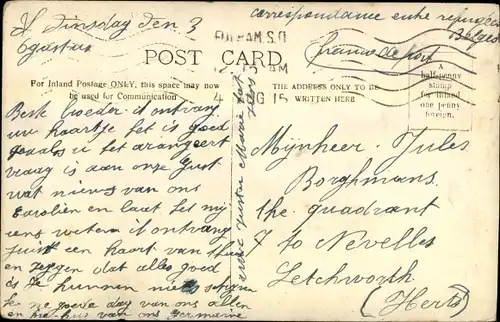 Dinsdag den 3
Ogustus
correspondance entre refugiés
Belges
franc de port
FULHAM. S.O
AM
4 AUG 15
POST CARD.
For Inland Postage ONLY, this space may now
be used for Communication
THE ADDRESS ONLY TO BE
WRITTEN HERE
A
half-penny
stamp
for Inland
one penny
foreign.
Beste broeder ik ontvang
uw kaartje het is goed
zooals u het arangeert
vraag is aan onze Gust
wat nieuws van ons
Carolien en laat het mij
eens weten ik ontvang
juist een kaart van thuis
en zeggen dat alles goed
is ze kunnen niets
goede dag van ons allen
en van ons Germaine
uwe zuster Marie
Mijnheer Jules
Borghmans
the quadrant
7 to Nevelles
Letchworth
(Herts)